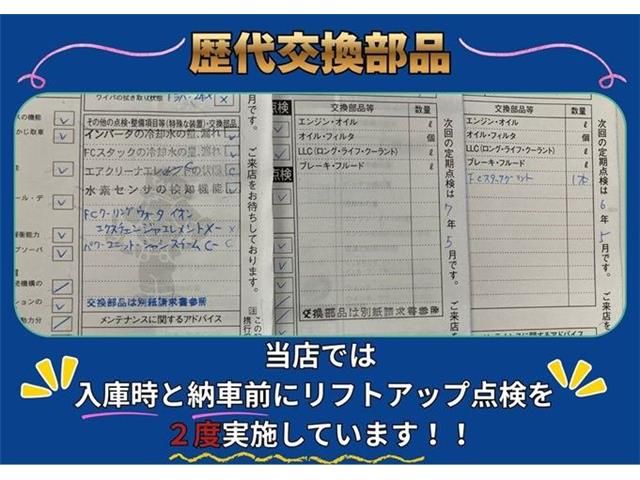 歴代交換部品
ワイパの拭き取り状態
スの機能
かじ取車
ール・デ
衝能力
ブソーバ
機構の
ションの
動力分
その他の点検・整備項目等(特殊な装置)・交換部品
インバータの冷却水の量、漏れ
FCスタックの冷却水の量、漏れ
エアクリーナエレメントの状態 C
水素センサの検知機能
FCクーリング ウォータ イオン
エクスチェンジャエレメント X
パワーユニット C
交換部品は別紙請求書参照
メンテナンスに関するアドバイス
月です。 ご来店をお待ちしております。
点検
交換部品等 数量
エンジン・オイル ℓ
オイル・フィルタ 個
LLC(ロング・ライフ・クーラント) ℓ
ブレーキ・フルード ℓ
点検
交換部品は別紙請求書参照
次回の定期点検は 7年 5月です。 ご来店を
交換部品等 数量
エンジン・オイル ℓ
オイル・フィルタ 個
LLC(ロング・ライフ・クーラント) ℓ
ブレーキ・フルード ℓ
メンテナンスに関するアドバイス
次回の定期点検は 6年 5月です。 ご来店を
当店では
入庫時と納車前にリフトアップ点検を
2度実施しています!!